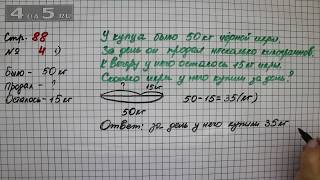 4 da 5.ru
Стр. 88
№ 4 1)
Было - 50 кг
Продал - ?
Осталось - 15 кг
У купца было 50 кг чёрной икры.
За день он продал несколько килограммов.
К вечеру у него осталось 15 кг икры.
Сколько икры у него купили за день?
? 15кг
50кг
50-15=35(кг)
Ответ: за день у него купили 35 кг